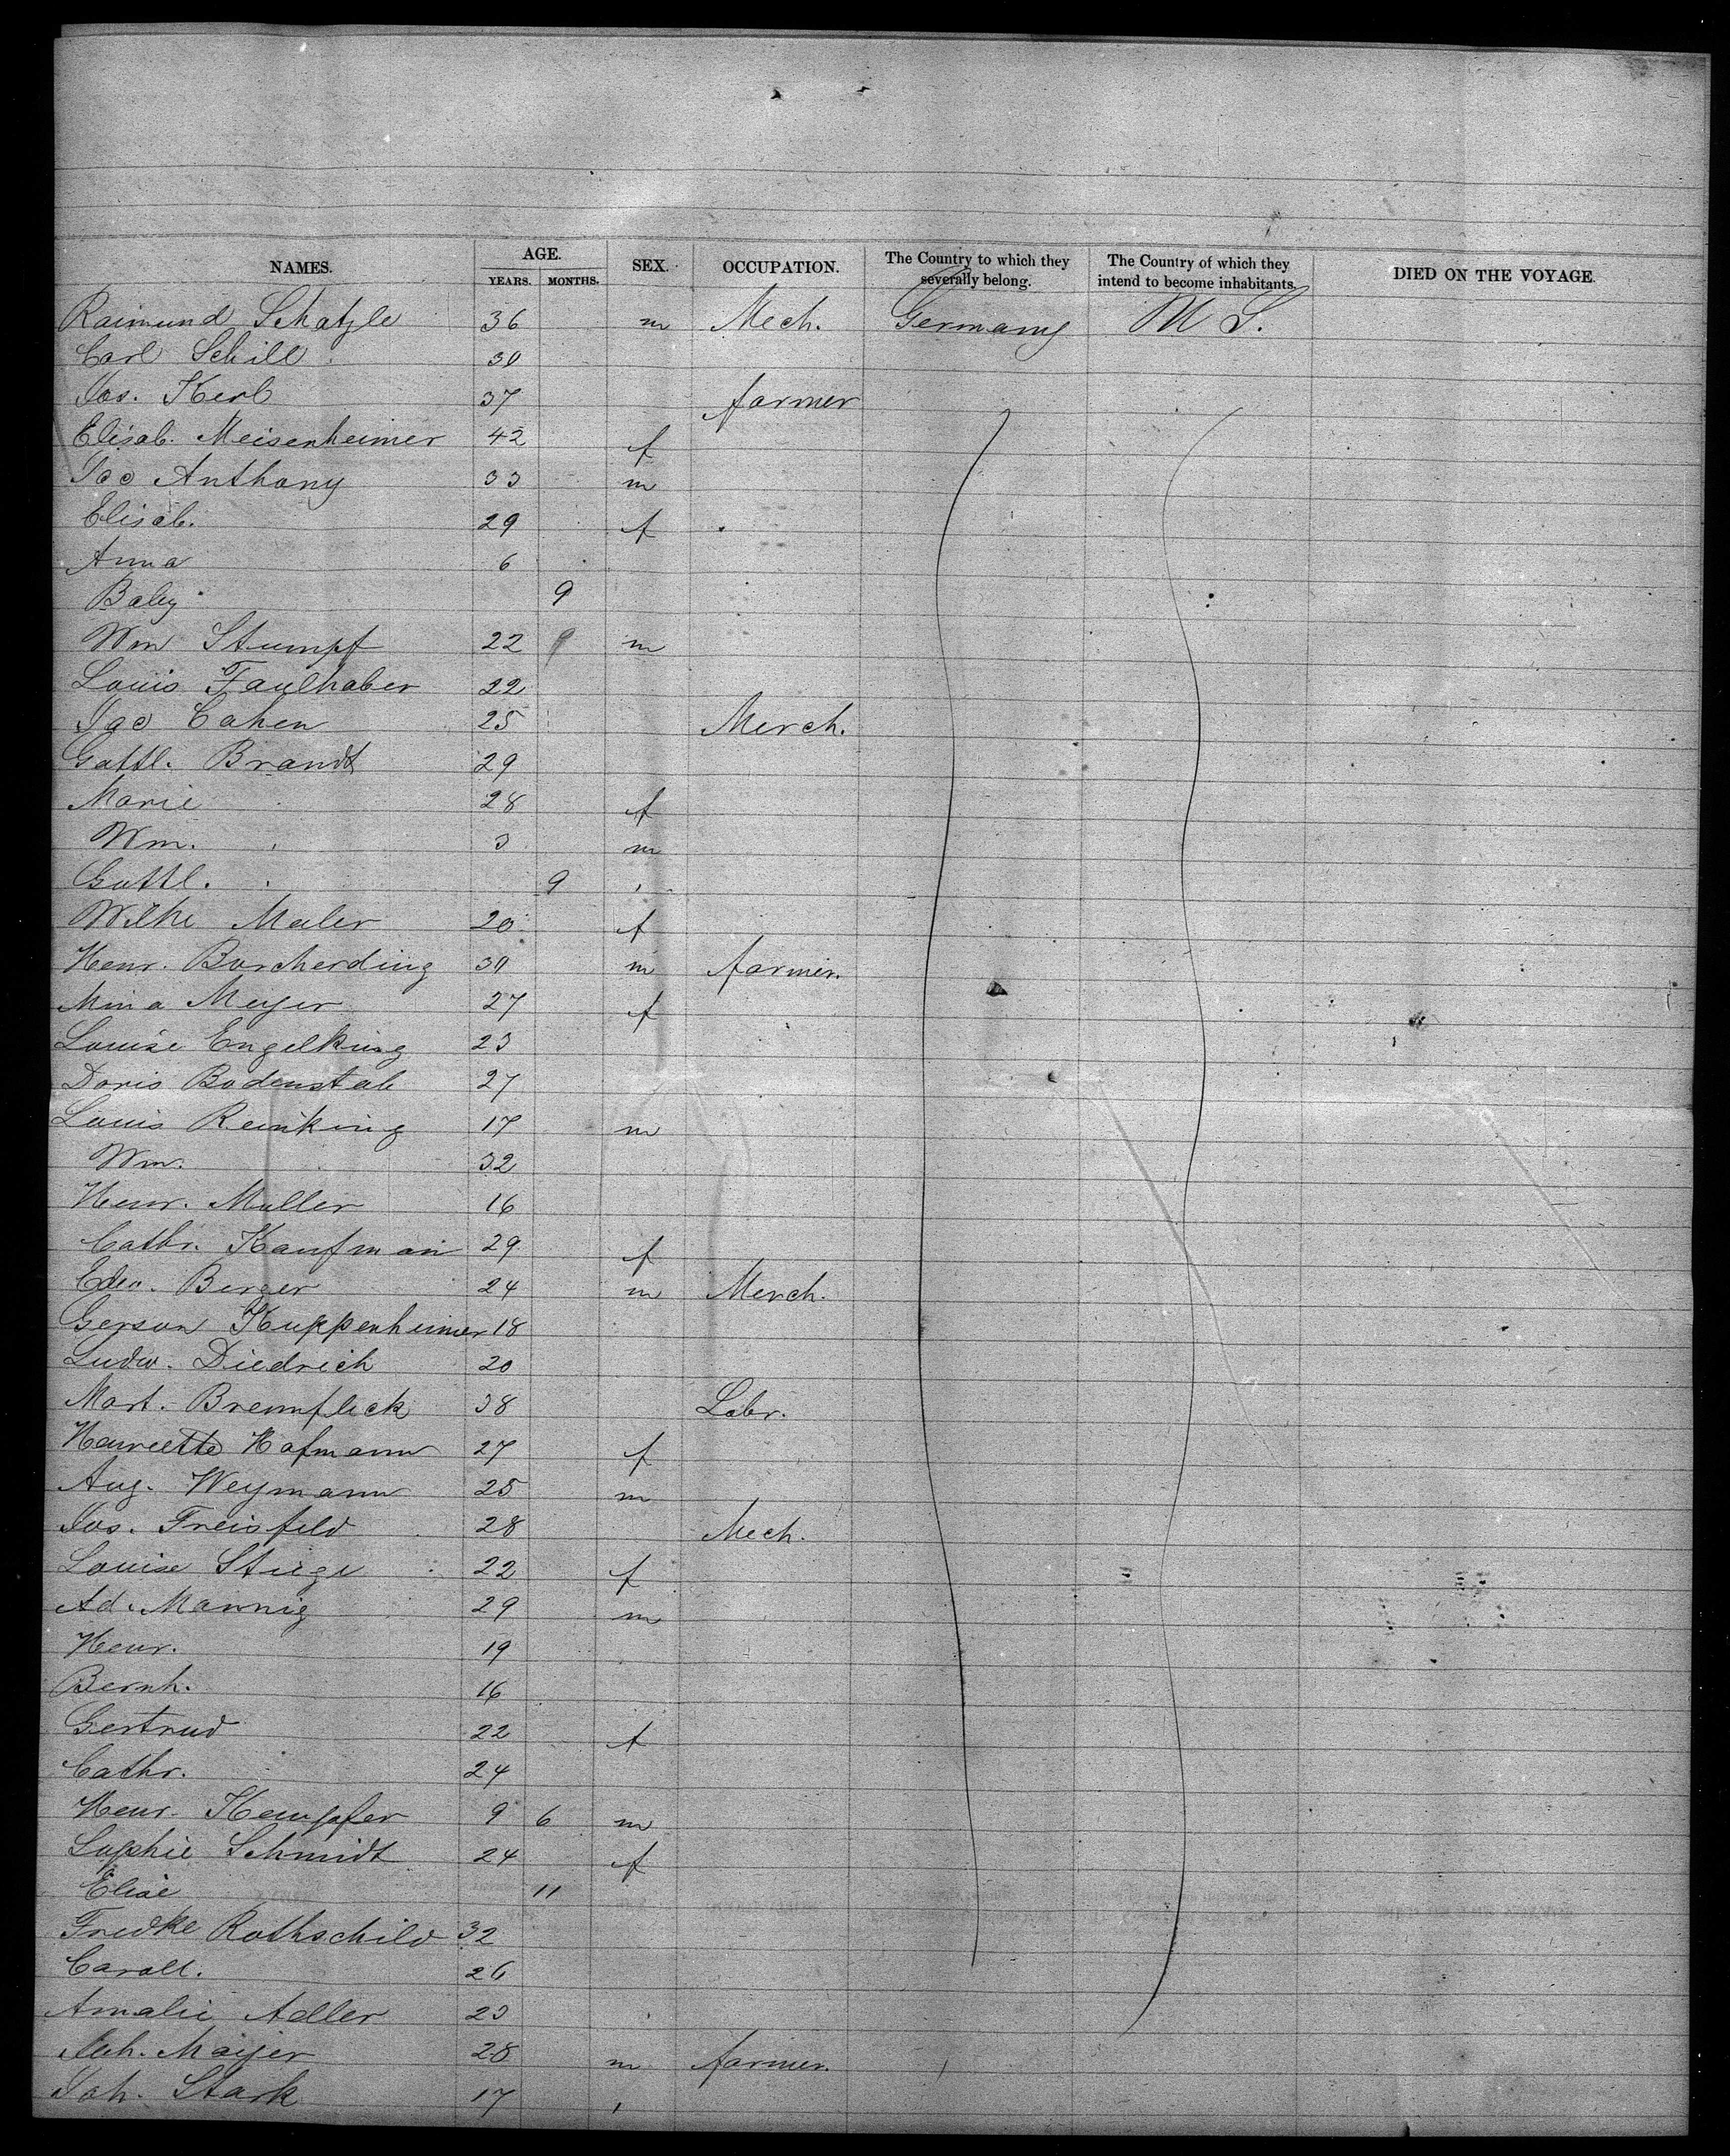 NAMES. AGE. SEX. OCCUPATION. The Country to which they severally belong. The Country of which they intend to become inhabitants. DIED ON THE VOYAGE.
YEARS. MONTHS.
Raimund Schatzle 36 m Mech. Germany U S.
Carl Schill 30
Jos. Kerb 37 farmer
Elisab. Meisenheimer 42 f
Jac Anthony 33 m
Elisab. 29 f
Anna 6
Baby 9
Wm Stumpf 22 m
Louis Faulhaber 22
Jac Cahen 25 Merch.
Gottl. Brandt 29
Marie 28 f
Wm. 3 m
Gottl. 9
Wilhe Maler 20 f
Henr. Borcherding 30 m farmer.
Mina Meyer 27 f
Louise Engelking 23
Doris Bodenstab 27
Louis Reinking 17 m
Wm. 32
Henr. Muller 16
Cathr. Kaufman 29 f
Edw. Berger 24 m Merch.
Gerson Kuppenheimer 18
Ludw. Diedrich 20
Mart. Brennfleck 38 Labr.
Henriette Hofmann 27 f
Aug. Weymann 25 m
Jos. Freisfeld 28 Mech.
Louise Stiege 22 f
Ad. Mannig 29 m
Henr. 19
Bernh. 16
Gertrud 22 f
Cathr. 24
Henr. Kempfer 9 6 m
Sophie Schmidt 24 f
Elise 11
Fredke Rothschild 32
Caroll. 26
Amalie Adler 23
Maijer 28 m farmer.
Joh. Stark 17